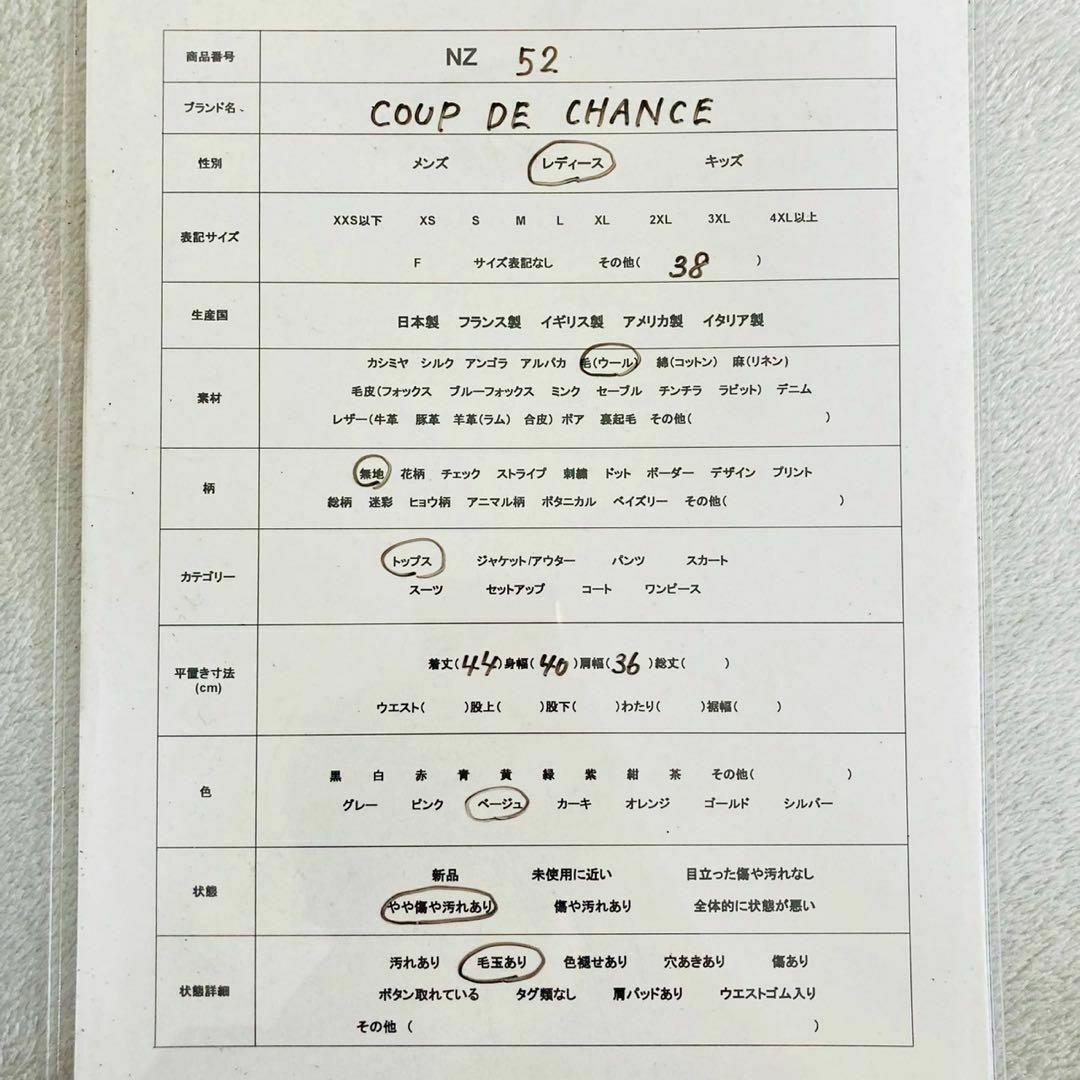 商品番号 NZ 52
ブランド名、 COUP DE CHANCE
性別 メンズ レディース キッズ
表記サイズ
XXS以下 XS S M L XL 2XL 3XL 4XL以上
F サイズ表記なし その他( 38 )
生産国 日本製 フランス製 イギリス製 アメリカ製 イタリア製
素材
カシミヤ シルク アンゴラ アルパカ 毛(ウール) 綿(コットン) 麻(リネン)
毛皮(フォックス ブルーフォックス ミンク セーブル チンチラ ラビット) デニム
レザー(牛革 豚革 羊革(ラム) 合皮) ボア 裏起毛 その他( )
柄
無地 花柄 チェック ストライプ 刺繍 ドット ボーダー デザイン プリント
総柄 迷彩 ヒョウ柄 アニマル柄 ボタニカル ペイズリー その他( )
カテゴリー
トップス ジャケット/アウター パンツ スカート
スーツ セットアップ コート ワンピース
平置き寸法
(cm)
着丈(44)身幅(40)肩幅(36)総丈( )
ウエスト( )股上( )股下( )わたり( )裾幅( )
色
黒 白 赤 青 黄 緑 紫 紺 茶 その他( )
グレー ピンク ベージュ カーキ オレンジ ゴールド シルバー
状態
新品 未使用に近い 目立った傷や汚れなし
やや傷や汚れあり 傷や汚れあり 全体的に状態が悪い
状態詳細
汚れあり 毛玉あり 色褪せあり 穴あきあり 傷あり
ボタン取れている タグ類なし 肩パッドあり ウエストゴム入り
その他 ( )